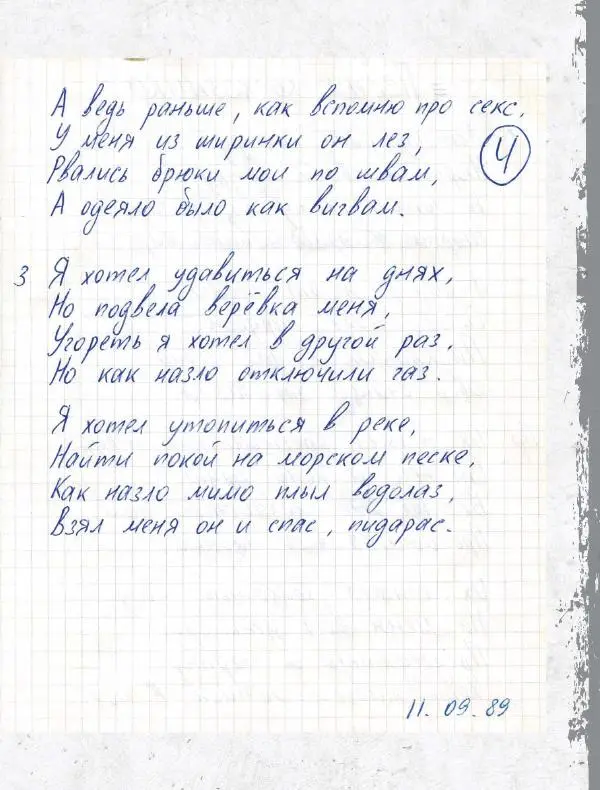 А ведь раньше, как вспомню про секс,
У меня из ширинки он лез,
Рвались брюки мои по швам,
А одеяло было как вигвам.
4
3 Я хотел удавиться на днях,
Но подвела верёвка меня,
Угореть я хотел в другой раз,
Но как назло отключили газ.
Я хотел утопиться в реке,
Найти покой на морском песке,
Как назло мимо плыл водолаз,
Взял меня он и спас, пидарас.
11.09.89